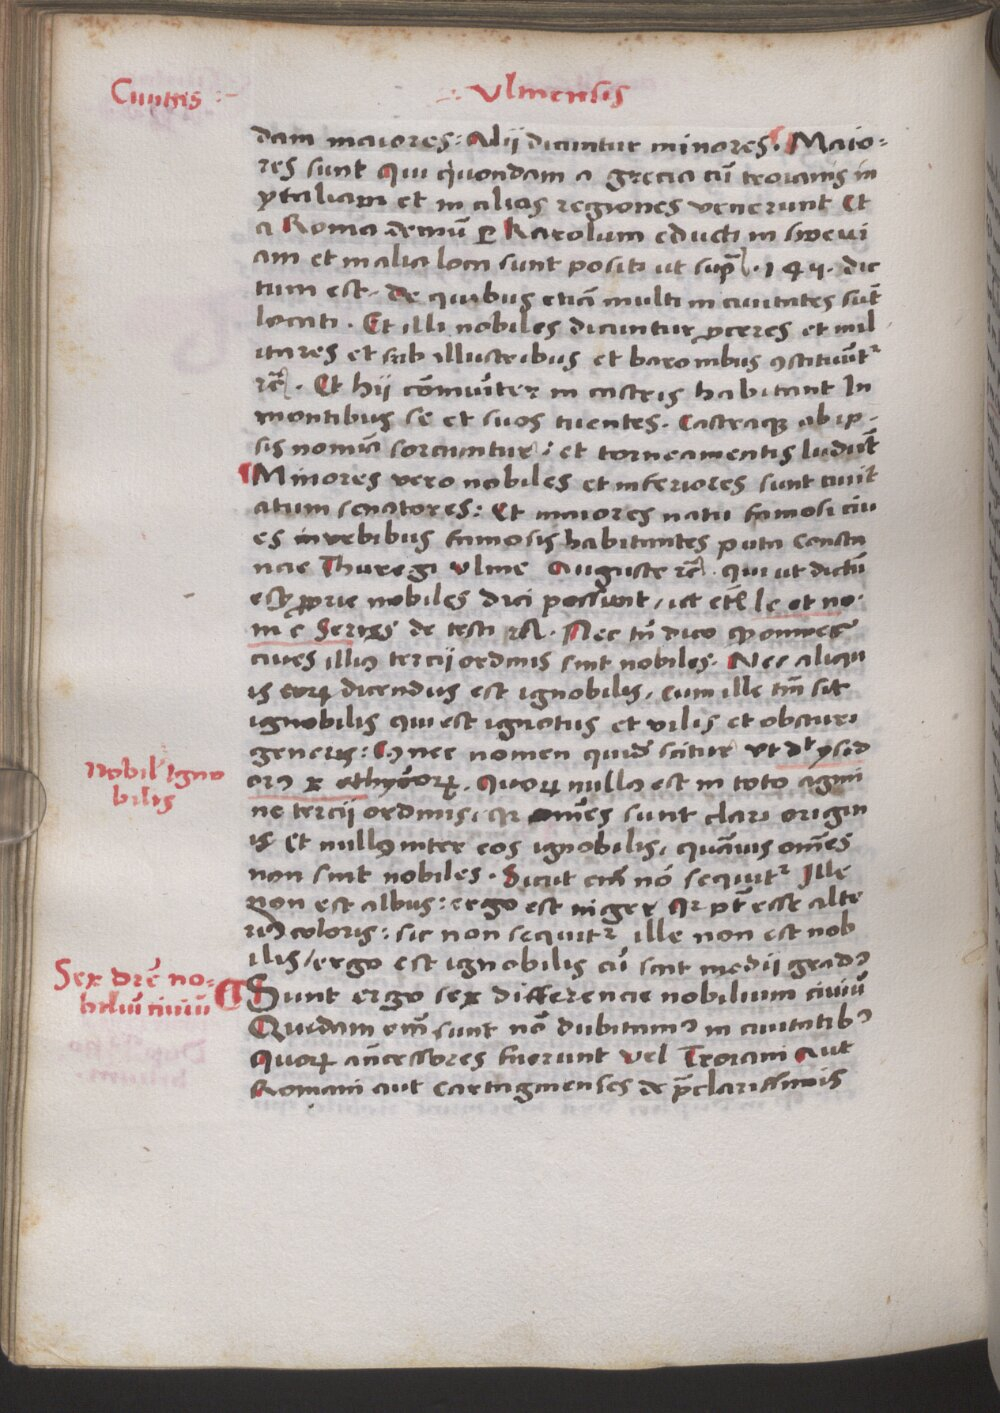 Ciuitatis
Vlmensis
dam maiores: Alij dicuntur minores. Maio=
res sunt Qui quondam a grecia cū troianis in
ytaliam et in alias regiones venerunt Et
a Roma demū ꝑ Karolum educti in swevi
am et in alia loca sunt positi ut sup̄ . 147. dic
tum est. de quibus etiā multi in ciuitates sūt
locati . Et illi nobiles dicuntur ꝓceres et mil
itares et sub illustribus et baronibus ꝯstituūtr
rc̄. Et hij cōmuniter in castris habitant In
montibus se et suos tuentes. Castraqꝫ ab ip-
sis nomīa sorciuntur: et torneamentis ludūt
Minores vero nobiles et inferiores sunt ciuit
atum senatores: Et maiores natu famosi ciu
es in vrbibus famosis habitantes puta Consta
ncie Thuregi vlme Auguste rc̄. qui ut dictū
est ꝓprie nobiles dici possunt, ut
de testi Nec tn̄ dico ꝙ omnes
ciues illiꝰ tercij ordinis sint nobiles. Nec aliqu
is eorꝝ dicendus est ignobilis, cum ille tm̄ sit
ignobilis qui est ignotus et vilis et obscuri
generis: Cꝰ nec nomen quidē scitur vt dt ysid
orꝰ x ethygorꝝ. Quorꝝ nullꝰ est in toto agmi
ne tercij ordinis, qr omēs sunt clari origin
is Et nullꝰ inter eos ignobilis, quāuis omēs
non sint nobiles. Sicut em̄ nō sequitr Ille
non est albus: ergo est niger Qr pt̄ esse alte
riꝰ coloris: sic non sequitr ille non est nob
ilis / ergo est ignobilis cū sint medij gradꝰ
Sunt ergo sex differencie nobilium ciuiū
Quidam em̄ sunt nō dubitamꝰ in ciuitatibꝰ
Quorꝝ an̄cessores fuerunt vel Troiani Aut
Romani aut Cartaginenses de p̄clarissimis
Nobil' Igno
bilis
Sex drē no=
biliū ciuiū